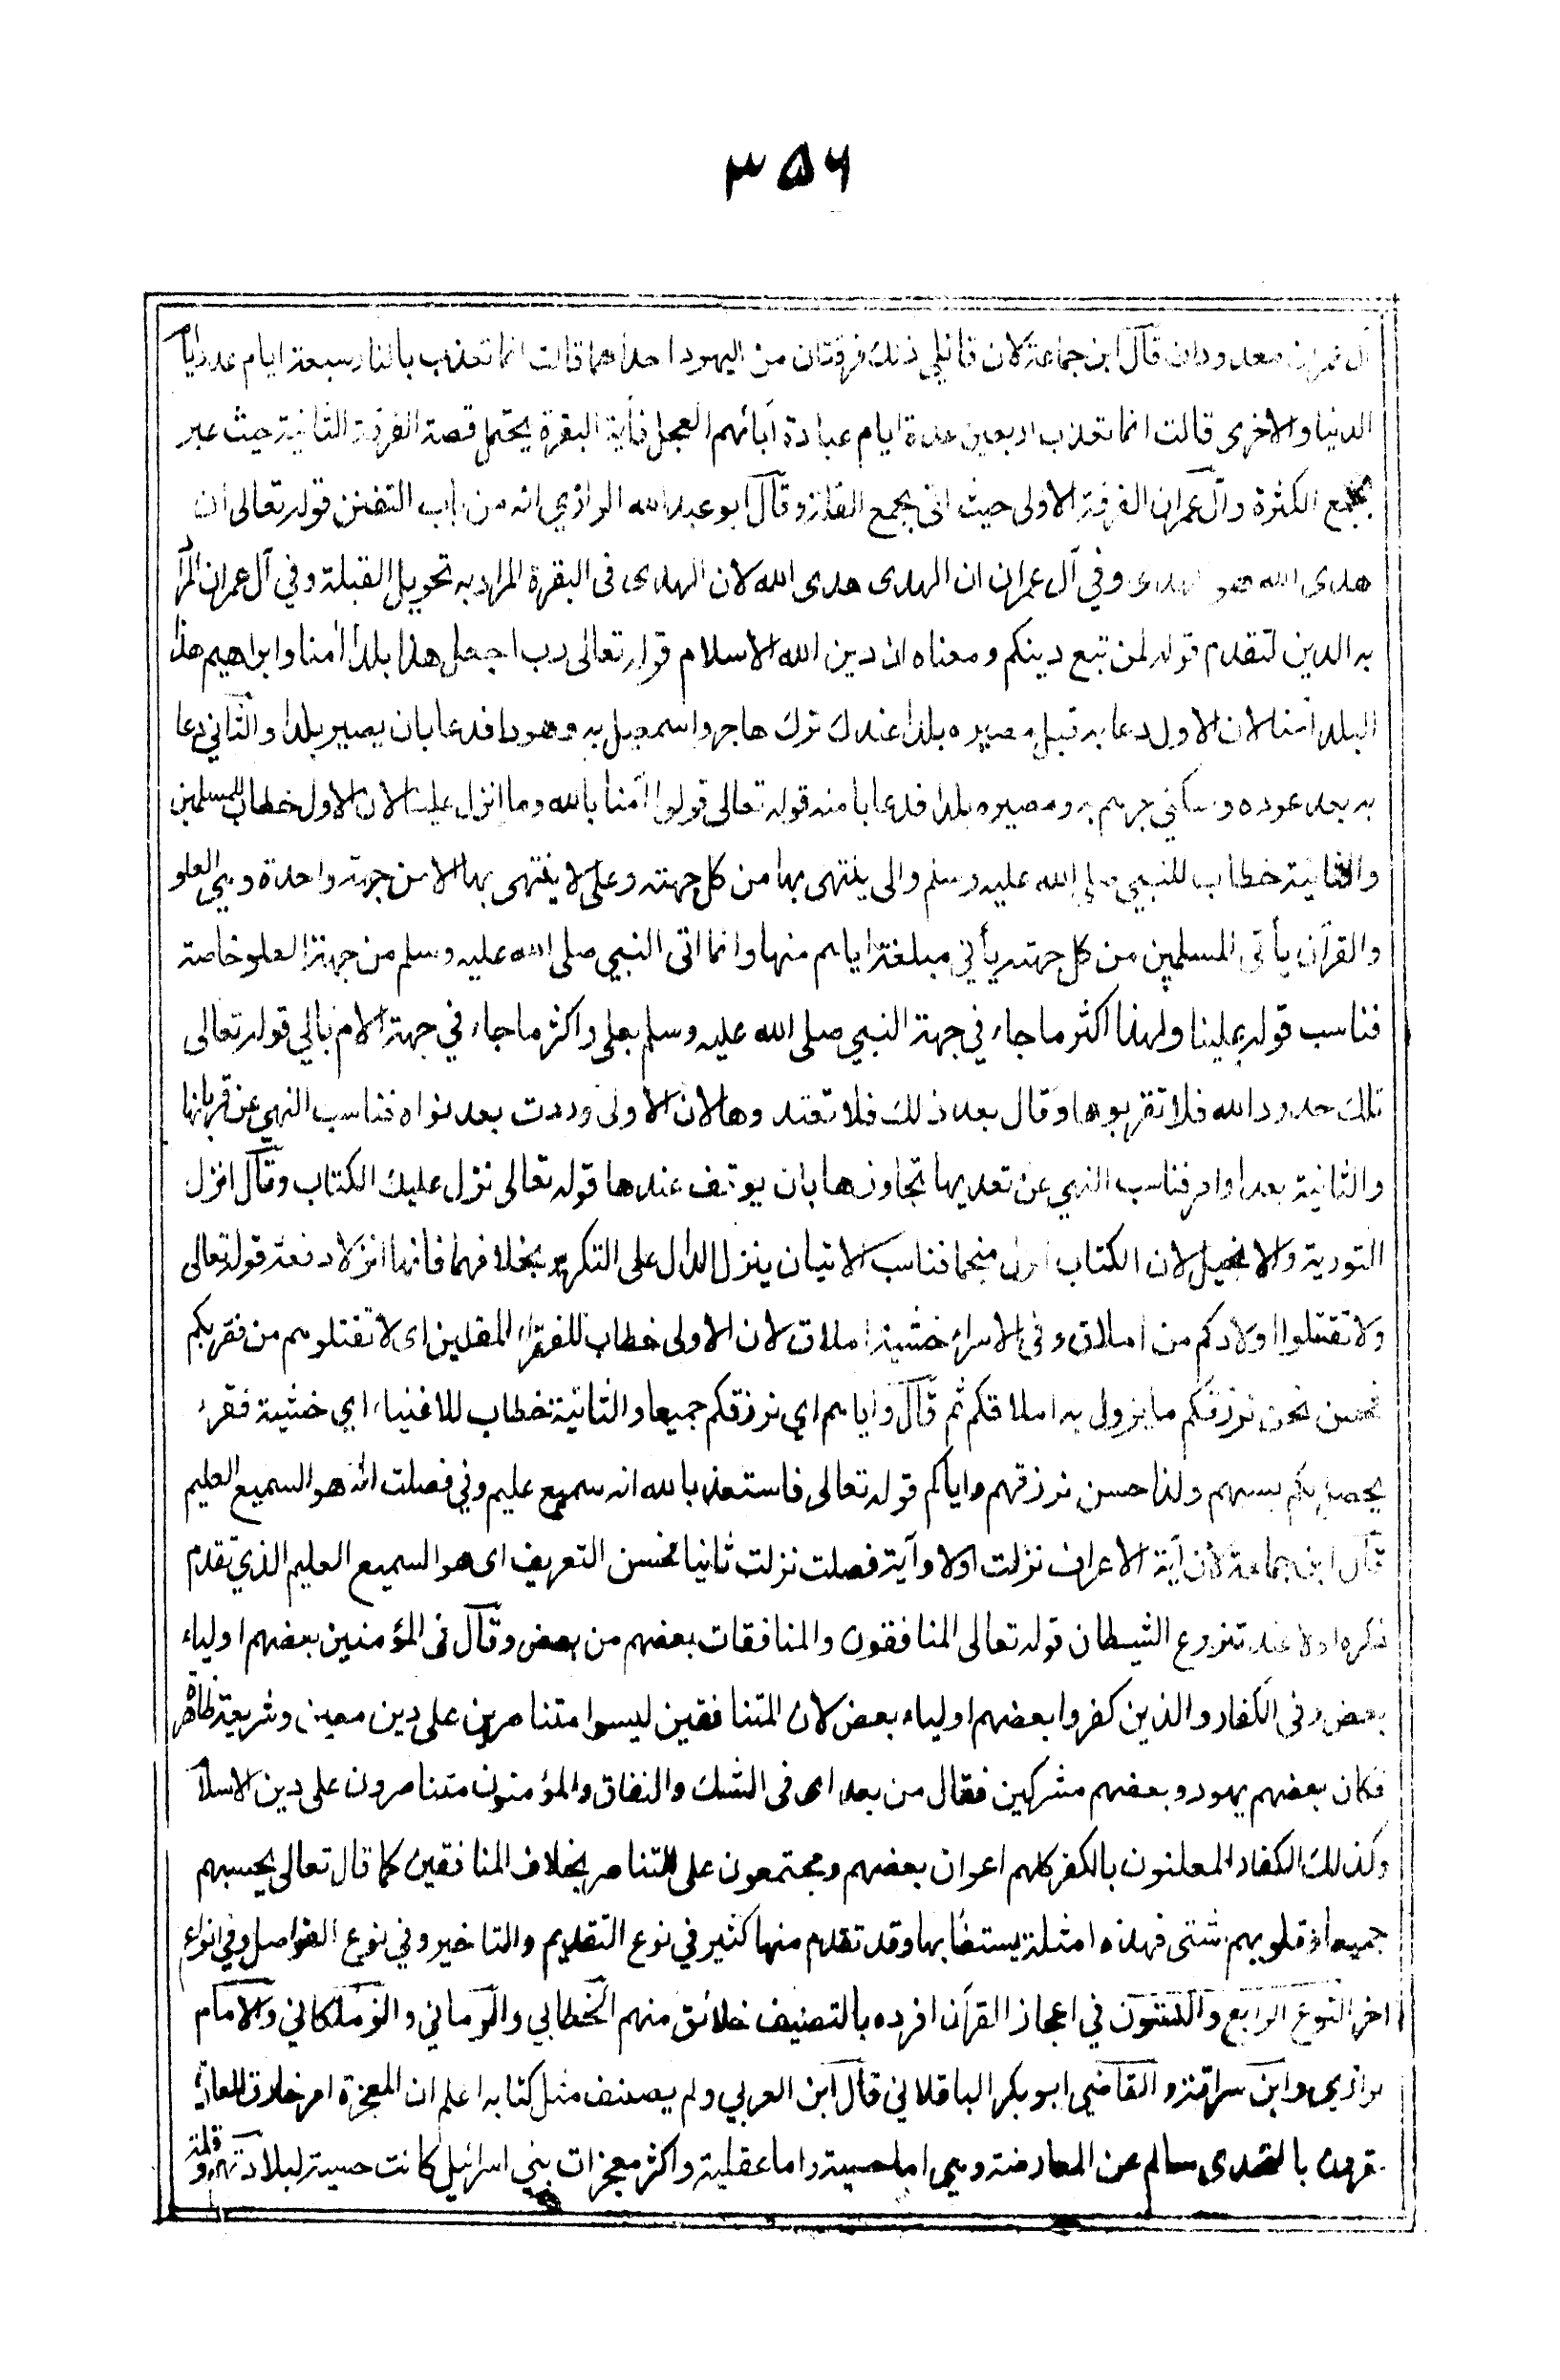 ٣٥٦
آل عمران معدودات قال ابن جماعة لان قائلي ذلك فرقتان من اليهود احداهما قالت انما تعذب بالنار سبعة ايام عدد ايام
الدنيا والاخرى قالت انما تعذب اربعين عدة ايام عبادة آبائهم العجل فآية البقرة يحتمل قصة الفرقة الثانية حيث عبر
بجمع الكثرة وآل عمران الفرقة الاولى حيث اتى بجمع القلة وقال ابو عبدالله الرازي انه من باب التفنن قوله تعالى ان
هدى الله هو الهدى وفي آل عمران ان الهدى هدى الله لان الهدى فى البقرة المراد به تحويل القبلة وفي آل عمران المراد
به الدين لتقدم قوله لمن تبع دينكم ومعناه ان دين الله الاسلام قوله تعالى رب اجعل هذا بلدا آمنا وابراهيم هذا
البلد آمنا لان الاول دعا به قبل مصيره بلدا عندك ترك هاجر واسمعيل به وهوا فدعا بان يصير بلدا والثاني دعا
به بعد عوده وسكني جرهم به ومصيره بلدا فدعا بامنه قوله تعالى قولوا آمنا بالله وما انزل علينا لان الاول خطاب للمسلمين
والثانية خطاب للنبي صلى الله عليه وسلم والى ينتهى بها من كل جهته وعلى لا ينتهى بها الا من جهة واحدة وهي العلو
والقرآن يأتى المسلمين من كل جهته يأتي مبلغة اياهم منها وانما اتى النبي صلى الله عليه وسلم من جهة العلو خاصة
فناسب قوله علينا ولهذا اكثر ما جاء في جهة النبي صلى الله عليه وسلم بعلى واكثر ما جاء في جهة الام بالي قوله تعالى
تلك حدود الله فلا تقربوها وقال بعد ذلك فلا تعتدوها لان الاولى وردت بعد نواه فناسب النهي عن قربانها
والثانية بعد اوامر فناسب النهي عن تعديها تجاوزها بان يوقف عندها قوله تعالى نزل عليك الكتاب وقال انزل
التورية والانجيل لان الكتاب انزل منجما فناسب الاتيان بنزل الدال على التكرير بخلافهما فانهما انزلا دفعة قوله تعالى
ولا تقتلوا اولادكم من املاق وفى الاسراء خشية املاق لان الاولى خطاب للفقراء المقلين اى لا تقتلوهم من فقر بكم
فحسن نحن نرزقكم ما يزول به املاقكم ثم قال واياهم اي نرزقكم جميعا والثانية خطاب للاغنياء اي خشية فقر
يحصل بكم بسببهم ولذا حسن نرزقهم واياكم قوله تعالى فاستعذ بالله انه سميع عليم وفي فصلت انه هو السميع العليم
قال ابن جماعة لان آية الاعراف نزلت اولا وآية فصلت نزلت ثانيا فحسن التعريف اى هو السميع العليم الذي تقدم
ذكره اولا عند نزوع الشيطان قوله تعالى المنافقون والمنافقات بعضهم من بعض وقال فى المؤمنين بعضهم اولياء
بعض وفى الكفار والذين كفروا بعضهم اولياء بعض لان المتنافقين ليسوا متناصرين على دين معين وشريعة ظاهرة
فكان بعضهم يهود وبعضهم مشركين فقال من بعد اى فى الشك والنفاق والمؤمنون متناصرون على دين الاسلام
وكذلك الكفار المعلنون بالكفر كلهم اعوان بعضهم ومجتمعون على التناصر بخلاف المنافقين كما قال تعالى يحسبهم
جميعا وقلوبهم شتى فهذه امثلة يستضا بها وقد تقدم منها كثير في نوع التقديم والتاخير وفي نوع الفواصل وفي انواع
اخر النوع الرابع والستون في اعجاز القرآن افرده بالتصنيف خلائق منهم الخطابي والرماني والزملكاني والامام
الرازي وابن سراقة والقاضي ابو بكر الباقلاني قال ابن العربي ولم يصنف مثل كتابه اعلم ان المعجزة امر خارق للعادة
مقرون بالتحدى سالم عن المعارضة وهي اما حسية واما عقلية واكثر معجزات بني اسرائيل كانت حسية لبلادتهم وقلة